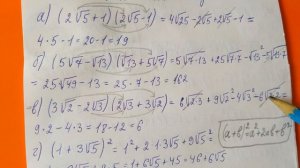 а) (2√5+1)(2√5-1) = 4√25-2√5+2√5-1 =
4·5-1=20-1=19
б) (5√7-√13)(√13+5√7) = 5√7·13+25√7·7-√13²-5√13·7
= 25√49-13 = 25·7-13 = 162
в) (3√2-2√3)(2√3+3√2) = 6√2·3+9√2²-4√3²-6√3·2=
9·2-4·3=18-12=6
г) (1+3√5)² = 1²+2·1·3√5+9√5²=
(a+b)²=a²+2ab+b²